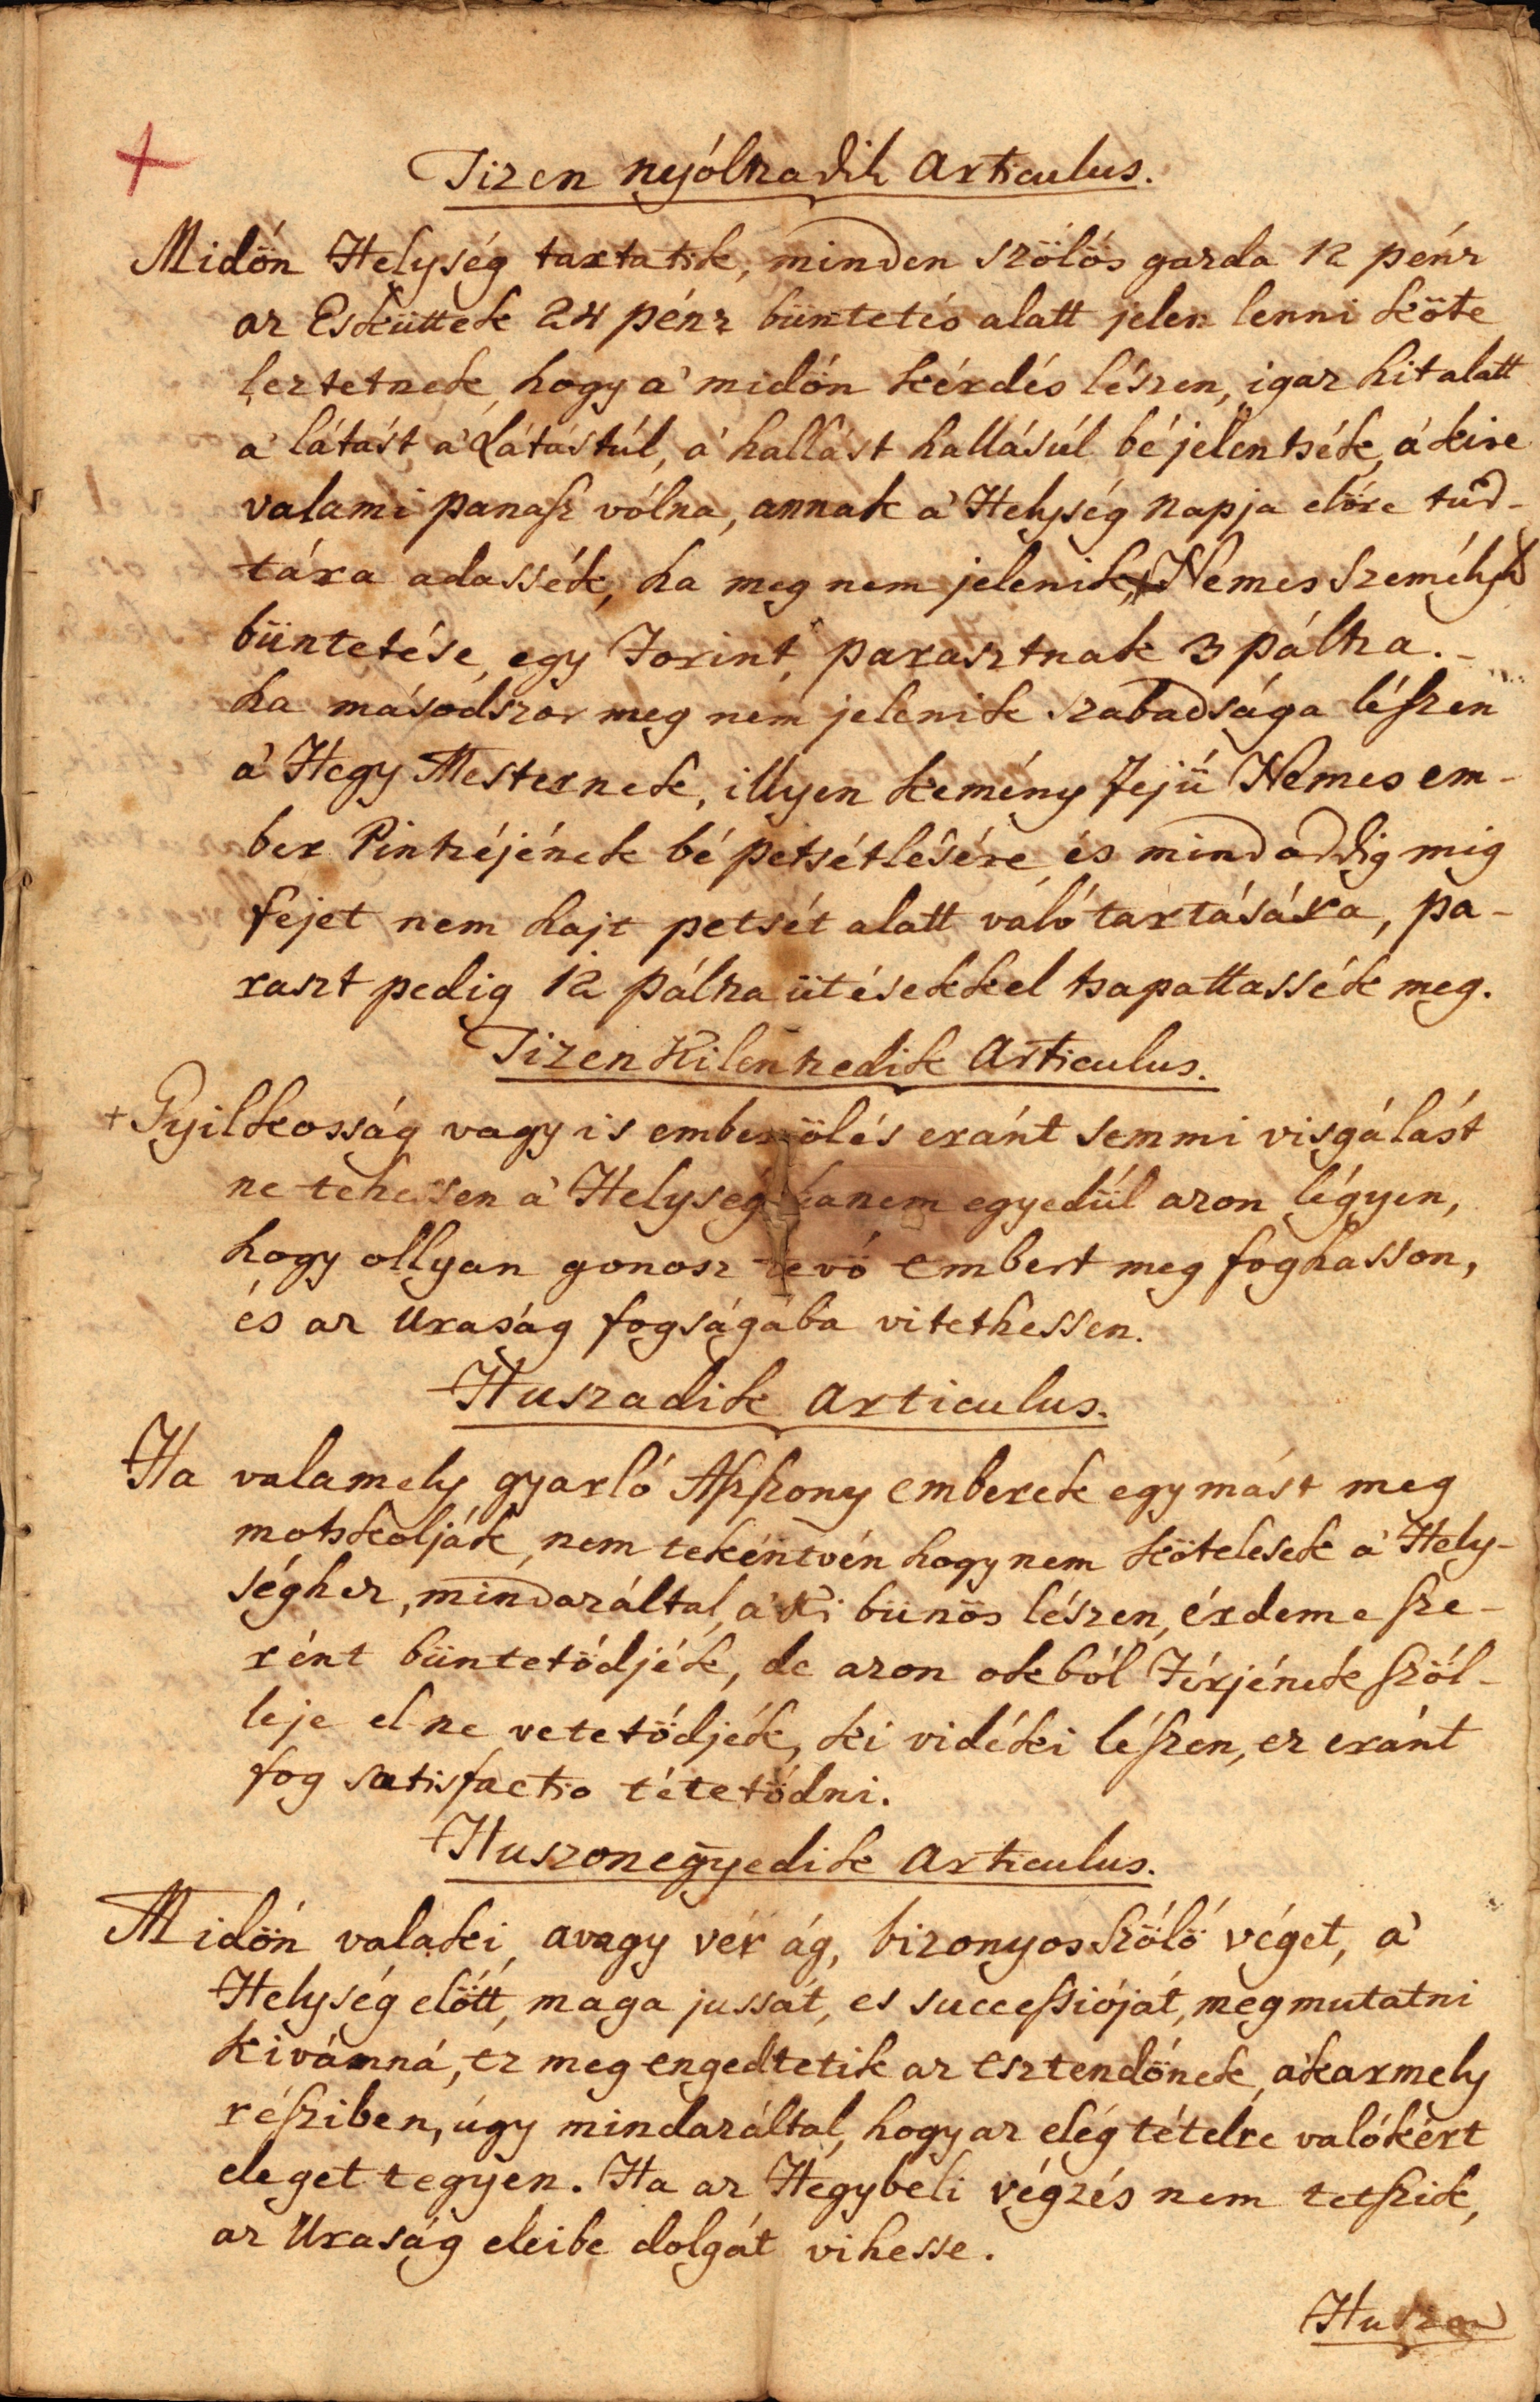 Tizen nyóltzadik Articulus.
Midőn Helység tartatik, minden szőlős gazda 12 pénz
az Esküttek 24 pénz büntetés alatt jelen lenni köte
leztetnek, hogy a' midőn kérdés lészen, igaz hit alatt
a' látást a' látástúl, a' hallást hallásúl bé jelentsék, a' kire
valami panasz vólna, annak a' Helység napja előre tud-
tára adassék, ha meg nem jelenik, Nemes Személy
büntetése, egy forint, parasztnak 3 páltza.-
ha másodszor meg nem jelenik szabadsága lészen
a' Hegy Mesternek, illyen kemény fejü Nemes em-
ber Pintzéjének bé petsétlésére, és mind addig mig
fejet nem hajt petsét alatt való tartására, pa-
raszt pedig 12 páltza ütésekkel tsapattassék meg.
Tizen Kilentzedik Articulus.
+ Gyilkosság vagy is ember ölés eránt semmi visgálást
ne tehessen a' Helység hanem egyedül azon légyen,
hogy ollyan gonosz tevő embert meg foghasson,
és az Uraság fogságába vitethessen.
Huszadik Articulus.
Ha valamely gyarló Aszszony emberek egymást meg
motskolják, nem tekéntvén hogy nem kötelesek a' Hely-
séghez, mindazáltal, a' Ki bünös lészen, érdeme sze-
rént büntetődjék, de azon okból Férjének szől-
leje el ne vetetődjék, ki vidéki lészen, ez eránt
fog satisfactio tétetődni.
Huszonegyedik Articulus.
Midőn valaki, avagy vér ág, bizonyos Szőlő véget, a'
Helység előtt, maga jussát, es successióját, megmutatni
kivánná, ez meg engedtetik az esztendőnek, akarmely
résziben, úgy mindazáltal, hogy az elég tételre valókért
eleget tegyen. Ha az Hegybeli végzés nem tetszik,
az Uraság eleibe dolgát vihesse.
Huszon